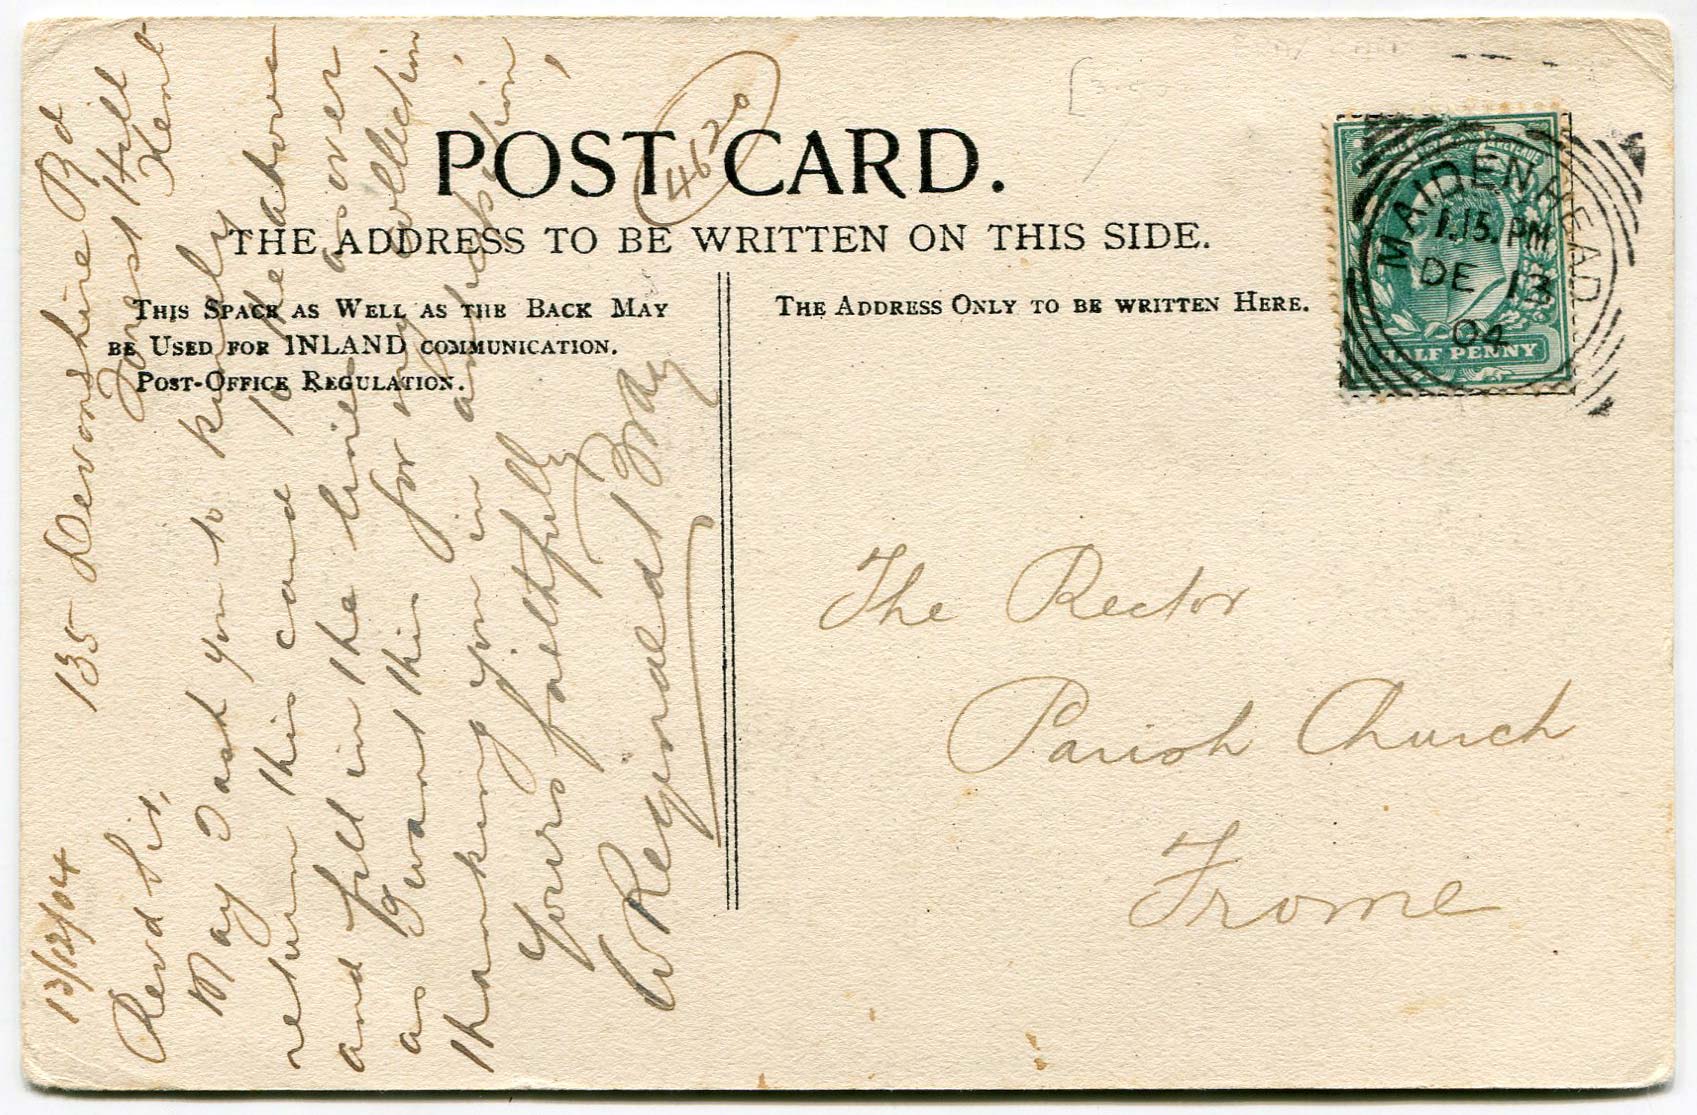 POST CARD.
THE ADDRESS TO BE WRITTEN ON THIS SIDE.
THIS SPACE AS WELL AS THE BACK MAY
BE USED FOR INLAND COMMUNICATION.
POST-OFFICE REGULATION.
THE ADDRESS ONLY TO BE WRITTEN HERE.
4620
MAIDENHEAD
1.15. PM
DE 13
04
HALF PENNY
13/12/04 135 Devonshire Rd
Forest Hill
Kent
Revd Sir,
May I ask you to kindly
return this card to the above
and fill in the lines over
as I want this for my collection
thanking you in anticipation,
Yours faithfully
W Reginald Bray
The Rector
Parish Church
Frome